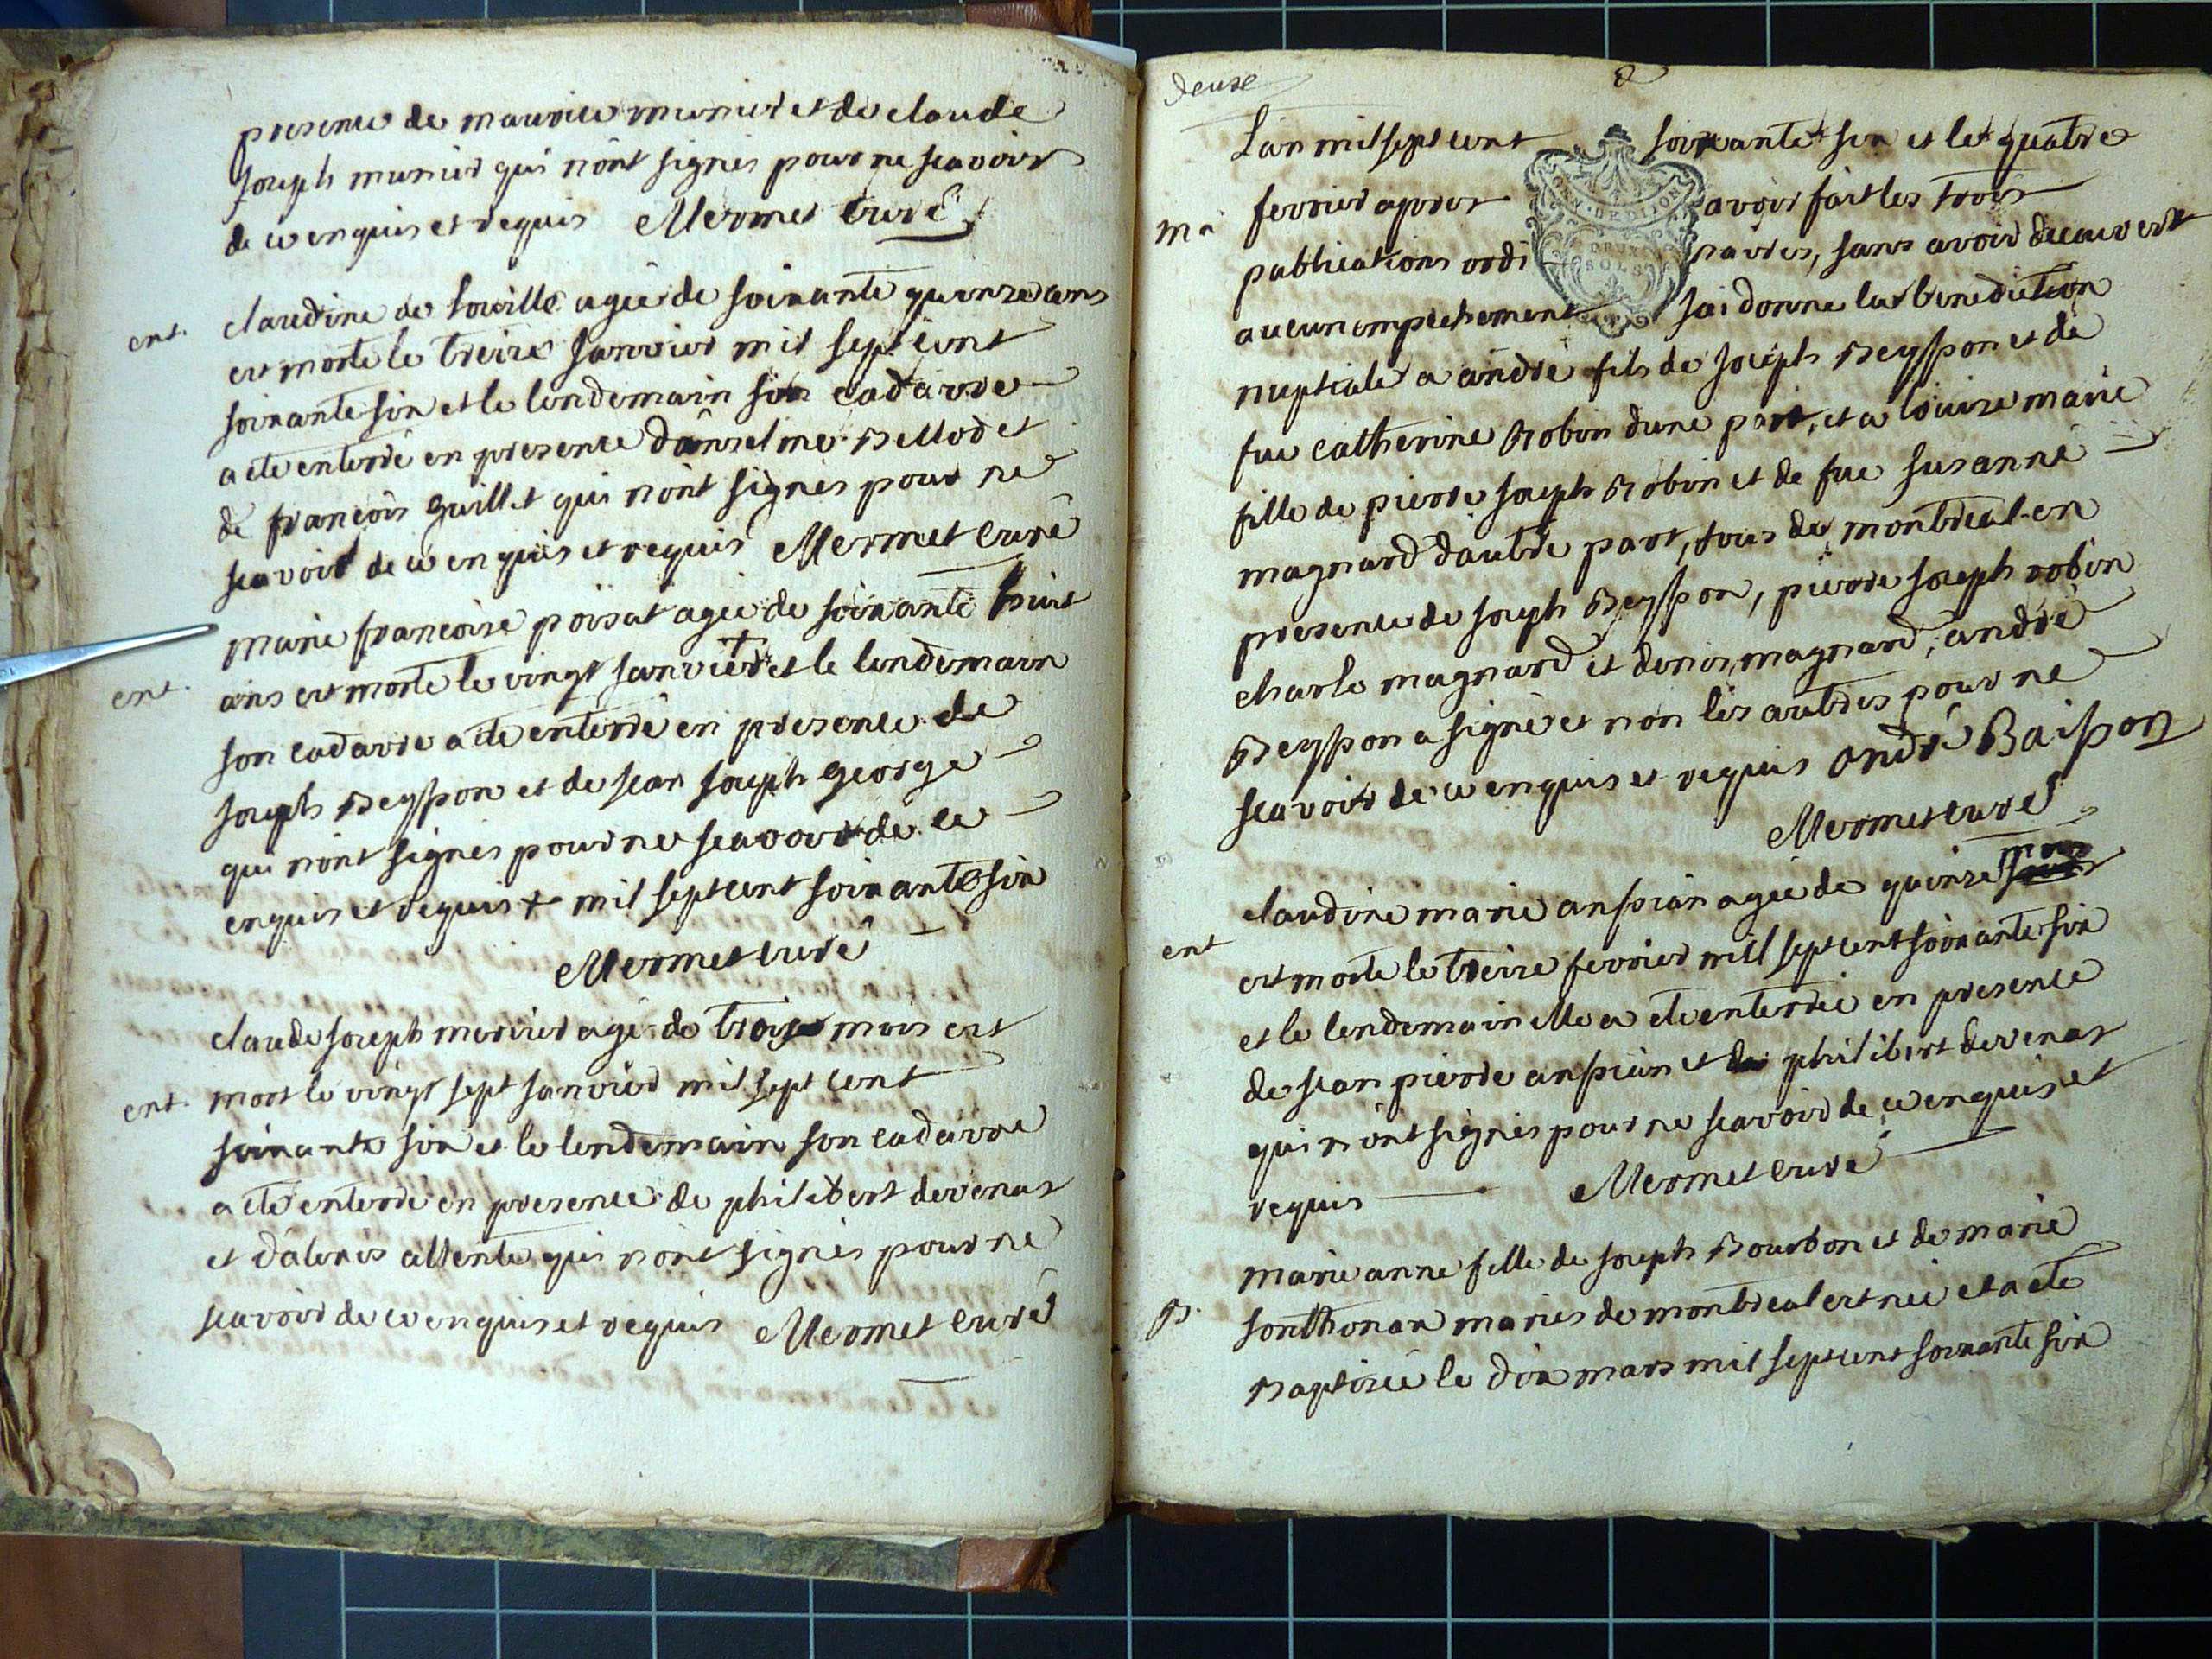 presence de maurice munier et de claude
joseph munier qui n'ont signes pour ne scavoir
de ce enquis et requis Mermet curé
ent.
claudine de souille agée de soixante quinze ans
est morte le treize janvier mil sept cent
soixante six et le lendemain son cadavre
a eté enterré en presence d'anselme Bellod et
de françois guillet qui n'ont signés pour ne
scavoir de ce enquis et requis Mermet curé
ent.
marie françoise poisat agée de soixante huit
ans est morte le vingt janvier + et le lendemain
son cadavre a eté enterré en presence de
joseph Beysson et de jean joseph george
qui n'ont signés pour ne scavoir de ce
enquis et requis + mil sept cent soixante six
Mermet curé
claude joseph mercier agé de trois mois est
ent.
mort le vingt sept janvier mil sept cent
soixante six et le lendemain son cadavre
a eté enterré en presence de philibert devenas
et d'alexis allente qui n'ont signés pour ne
scavoir de ce enquis et requis Mermet curé
deuxe
2
L'an mil sept cent soixante six et le quatre
GEN. DE DIJON
DEUX
SOLS
ma
fevrier apres avoir fait les trois
publications ordinaires, sans avoir decouvert
aucun empechement j'ai donne la benediction
nuptiale a andré fils de joseph Beysson et de
fue catherine Robin d'une part, et a louise marie
fille de pierre joseph Robin et de fue susanne
magnard d'autre part, tous de montreal en
presence de joseph Beysson, pierre joseph robin
charle magnard et denis magnard, andré
Beysson a signé et non les autres pour ne
scavoir de ce enquis et requis André Baisson
Mermet curé
claudine marie anssian agée de quinze mois
ent
est morte le treize fevrier mill sept cent soixante six
et le lendemain elle a eté enterrée en presence
de jean pierre anssian et de philibert devenas
qui n'ont signés pour ne scavoir de ce enquis et
requis Mermet curé
marie anne fille de joseph Bourbon et de marie
B.
sonthonax mariés de montreal est née et a eté
Baptisée le dix mars mil sept cent soixante six